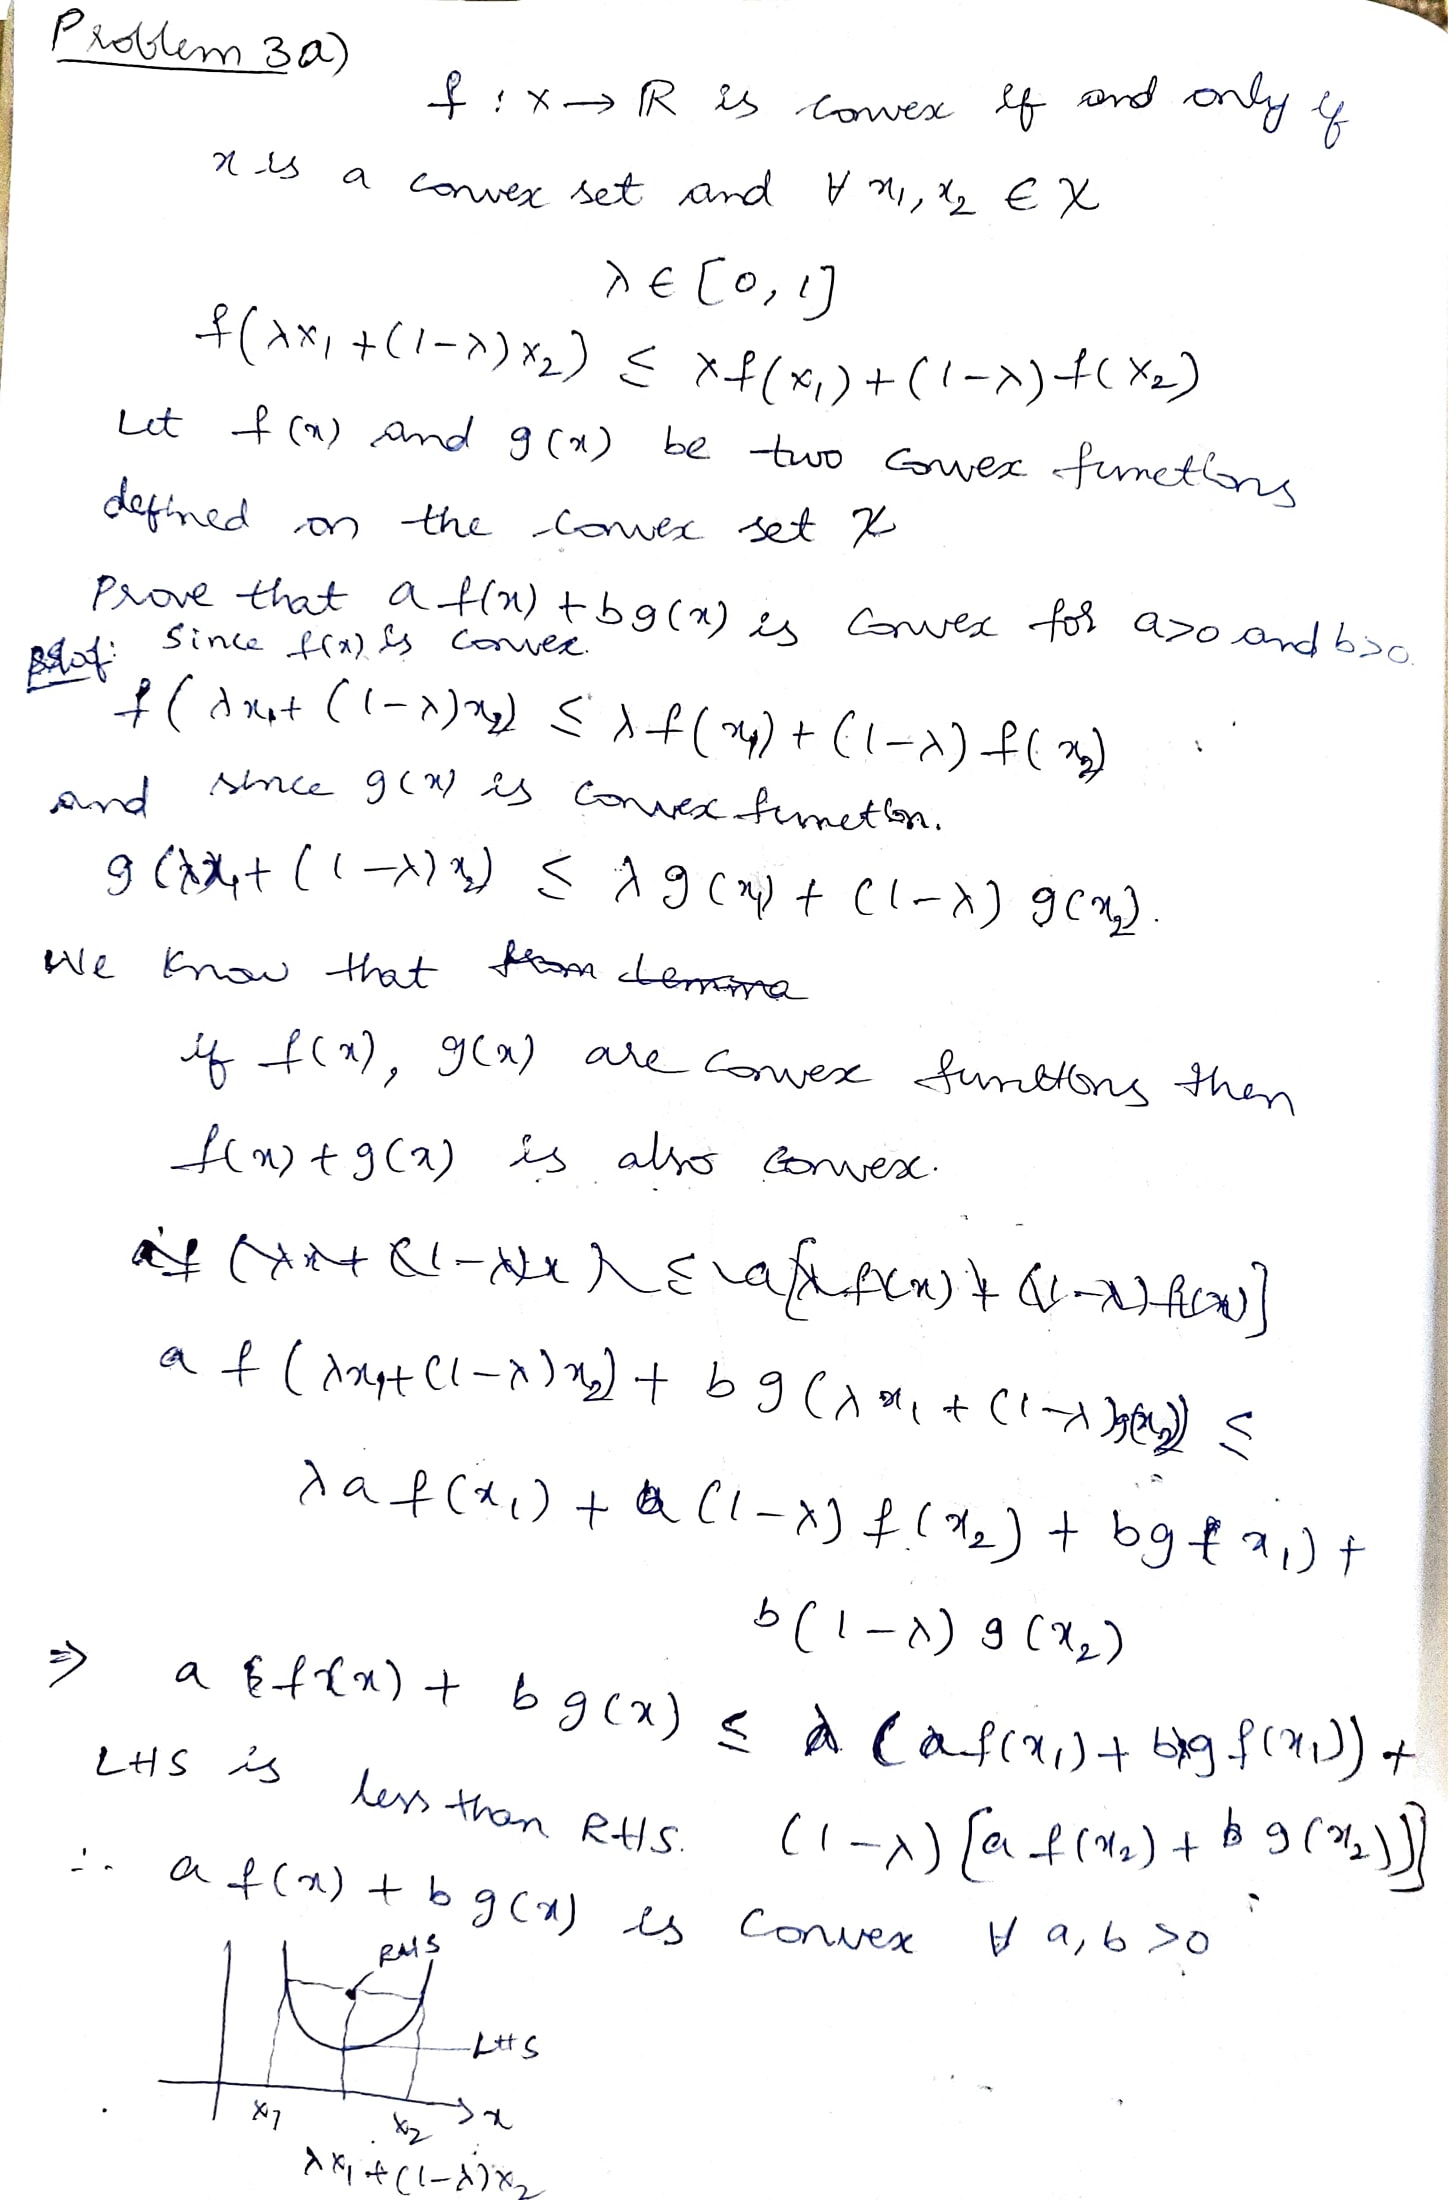 Problem 3a)
f : X → ℝ is convex if and only if
x is a convex set and ∀ x₁, x₂ ∈ X
λ ∈ [0, 1]
f(λx₁ + (1-λ)x₂) ≤ λf(x₁) + (1-λ)f(x₂)
Let f(x) and g(x) be two convex functions
defined on the convex set X
Prove that a f(x) + bg(x) is convex for a>0 and b>0.
Proof: Since f(x) is convex.
f(λx₁ + (1-λ)x₂) ≤ λf(x₁) + (1-λ) f(x₂)
and since g(x) is convex function.
g(λx₁ + (1-λ)x₂) ≤ λg(x₁) + (1-λ) g(x₂).
We know that from Lemma
if f(x), g(x) are convex functions then
f(x) + g(x) is also convex.
af (λx + (1-λ)x) ≤ a[λf(x) + (1-λ)f(x)]
a f (λx₁ + (1-λ)x₂) + b g(λx₁ + (1-λ)g(x₂)) ≤
λa f(x₁) + a (1-λ) f(x₂) + bg f x₁) +
b(1-λ) g(x₂)
⇒ a f(x) + b g(x) ≤ λ (a f(x₁) + bg f(x₁)) +
LHS is less than RHS. (1-λ) [a f(x₂) + b g(x₂)]]
∴ a f(x) + b g(x) is convex ∀ a, b >0
RHS
LHS
x₁ x₂ x
λx₁ + (1-λ)x₂